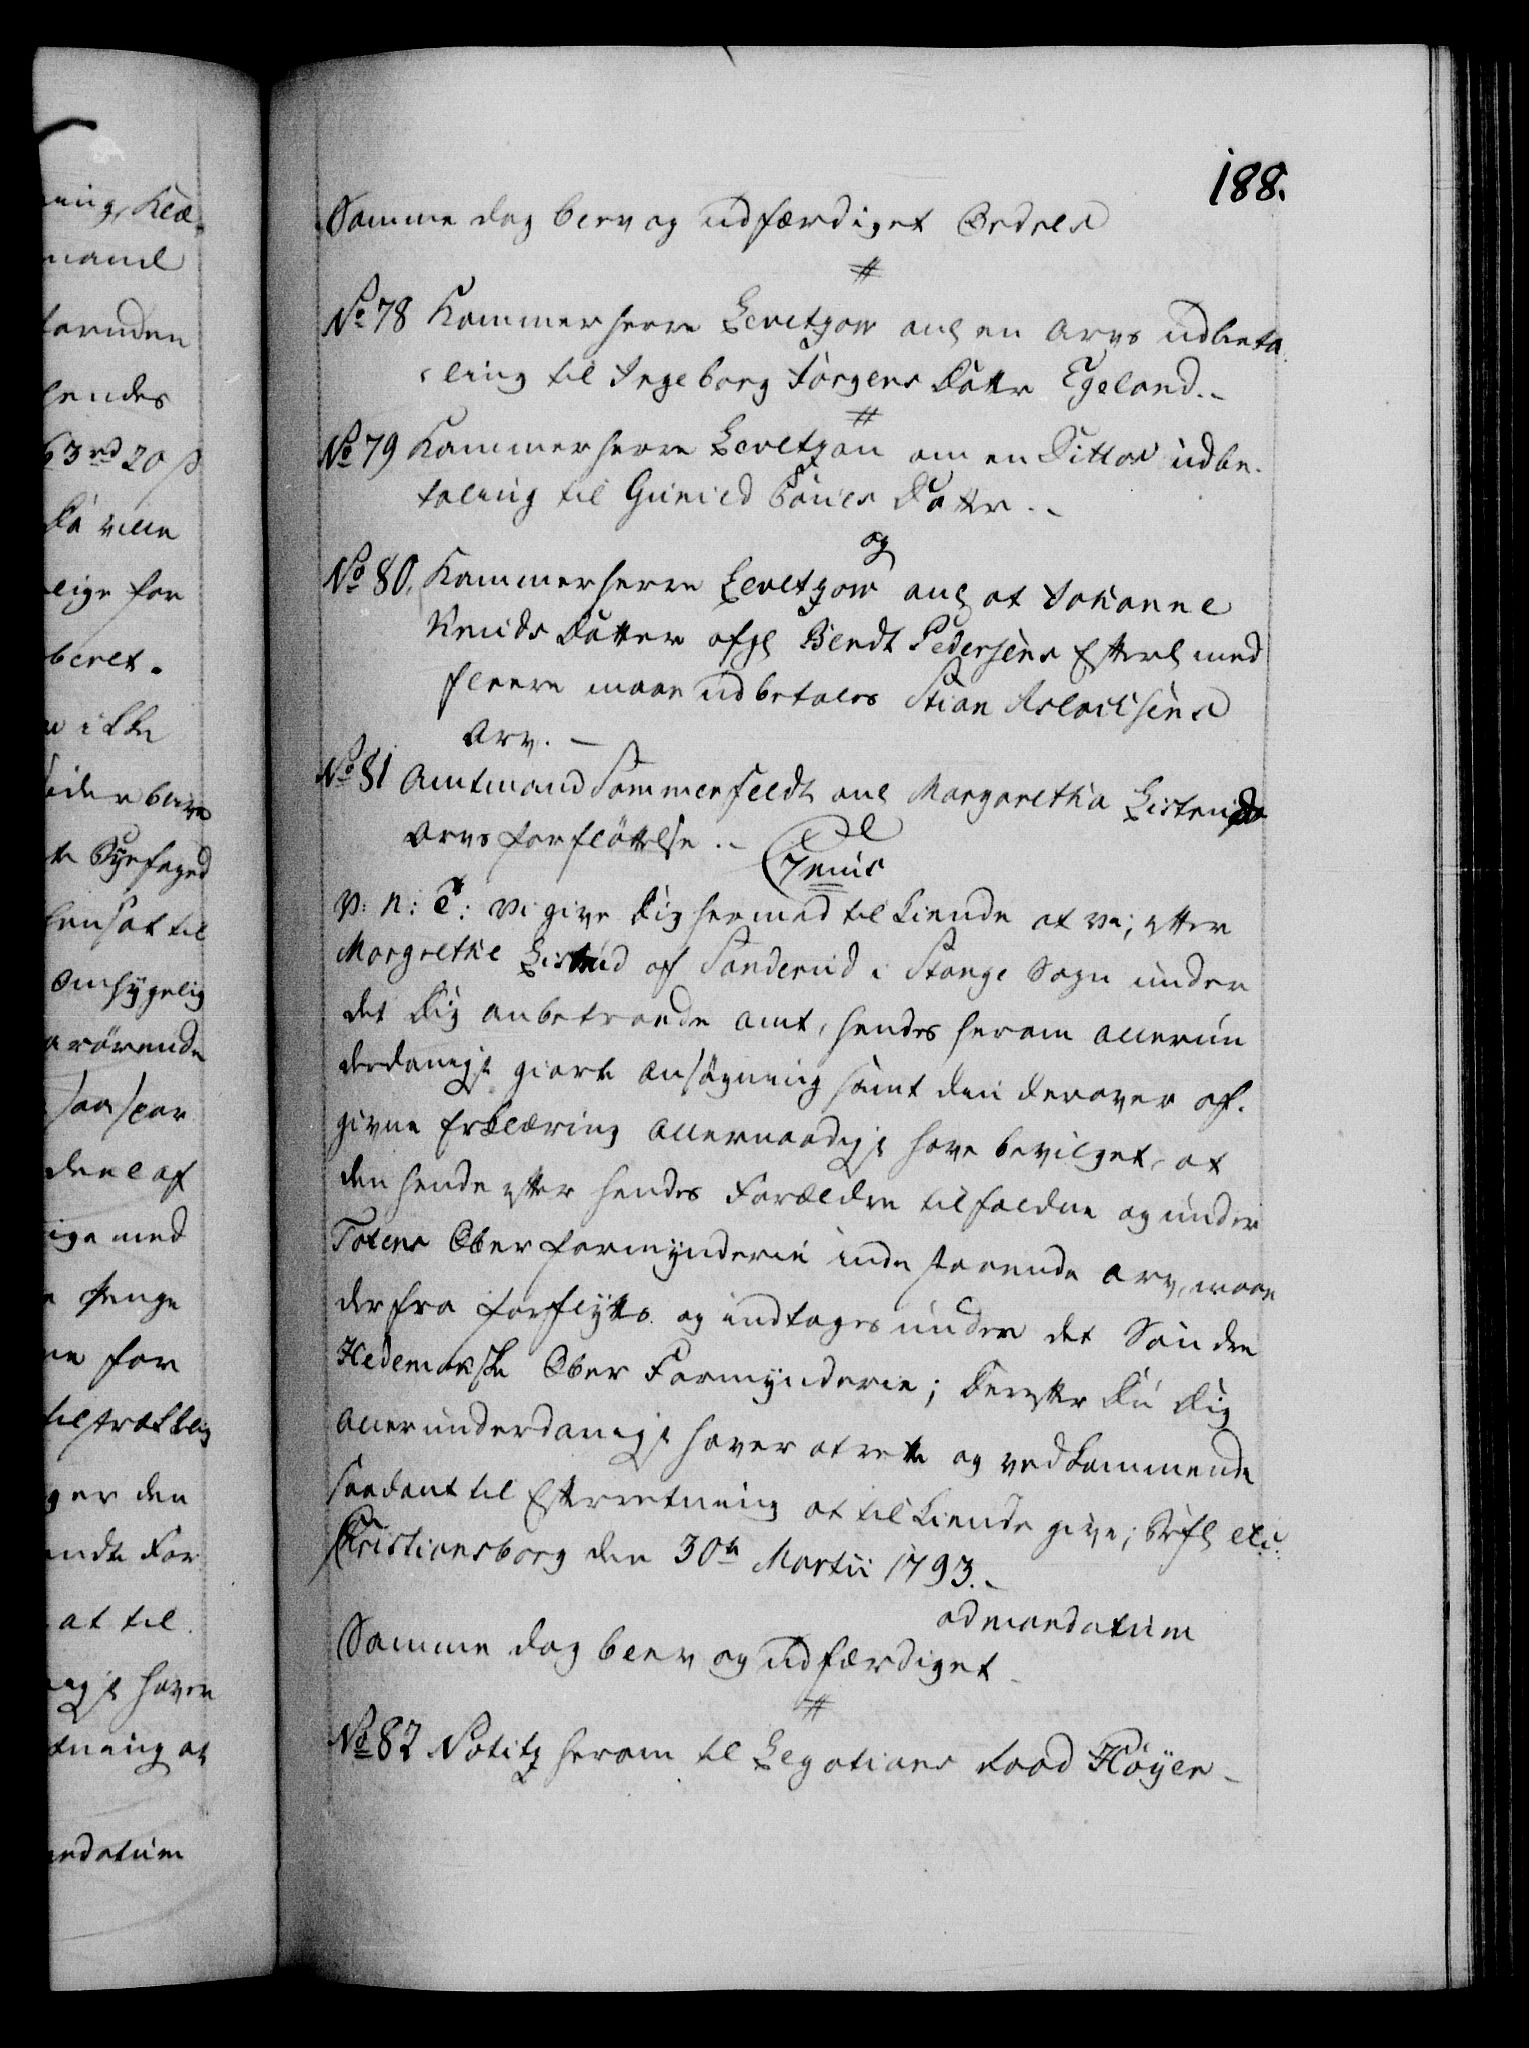 188.
Samme dag blev og udfærdiget Ordels
#
No 78 Kammerherre Levetzow anl en Arvs udbeta
ling til Ingeborg Jörgens Datter Egeland.
#
No 79 Kammerherre Levetzau om en Dittos udbe-
taling til Gunild Datter.
og
No 80. Kammerherre Levetzow anl at Johanne
Knuds Datter afgl Bendt Pedersens Efterl med
fleere maae udbetales Stian Aslachsens
Arv.
No 81 Amtmand Sommerfeldt anl Margaretha
Arvs forflöttelse.
Genis
V: n: T: Vi give Dig hermed til kiende at vi, efter
Margrethe af Sanderud i Stange Sogn under
det Dig anbetroede Amt, hendes herom allerun
derdanigst giorte Ansøgning samt den derover af-
givne Erklæring allernaadigst have bevilget, at
den hende efter hendes Forældre tilfaldne og under
Totens Over formynderie indestaaende Arv, maae
derfra forflyttes og indtages under det Søndre
Hedemarkske Over Formynderie; Derefter Du Dig
allerunderdanigst haver at rette og vedkommende
saadant til Efterretning at tilkiende give; Skrl etc:
Christiansborg den 30te Martii 1793.
ad mandatum
Samme dag blev og udfærdiget
#
No 82 Notitz herom til Legations Raad Höyer
ning, Klæ-
mand
foruden
hendes
63 rd 20 s
Da ville
lige for
beret.
ikke
te Byefoged
Omhygelig
rörende
saa snar
deel af
lige med
Penge
for
tilstrækkelig
ger den
endte For
at til
haver
tning at
andatum